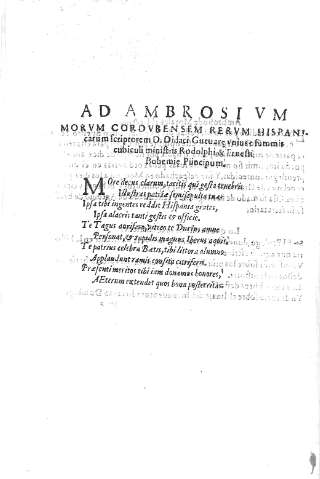 AD AMBROSIVM
MORVM CORDVBENSEM RERVM HISPANI-
carum scriptorem D. Didaci unius è summis
cubiculi ministris Rodolphi & Ernesti
Bohemiæ Principum.
More decus clarum, tacitis qui gesta tenebris
Illustras patriæ
Ipsa tibi ingentes reddit Hispania grates,
Ipsa alacri tanti gestit et officio.
Te Tagus aurifero, vitreo te Durius amne
Personat, et magnus Iberus aquis,
Te patrius celebrat Bætis, tibi littora
Applaudunt ramis consita
Præsenti meritos tibi iam donamus honores,
AEternum extendet quos bona posteritas.